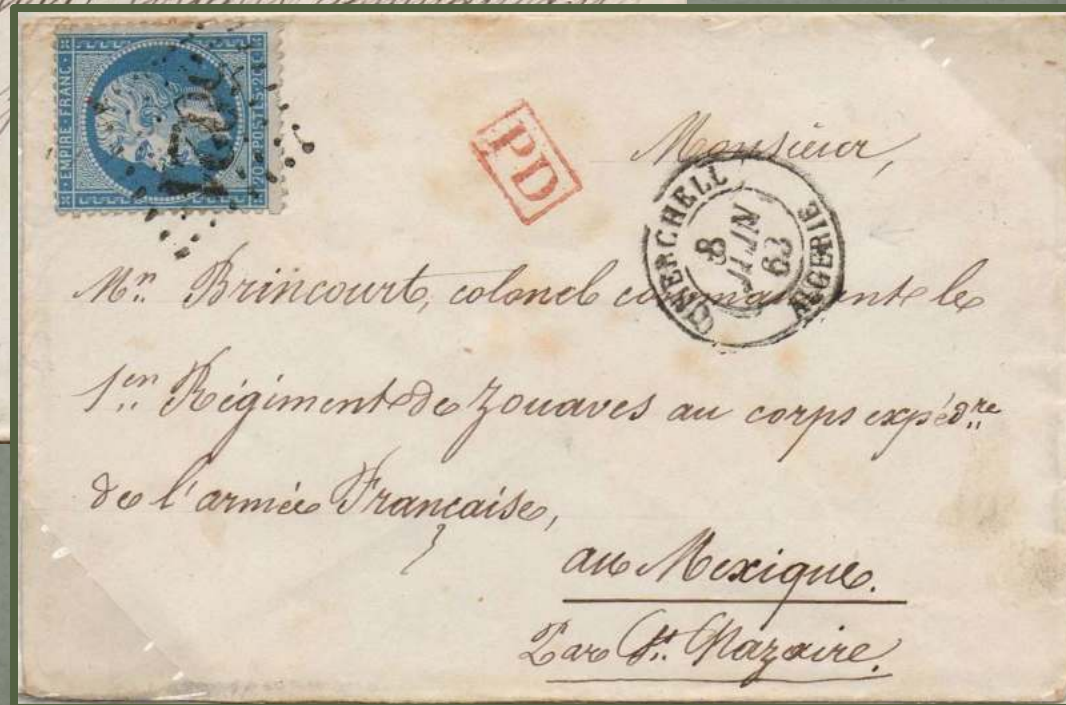 EMPIRE FRANC
20 C POSTES 20 C
PD
CHERCHELL
8
JUIN
63
ALGERIE
Monsieur,
Mr. Brincourt, colonel commandant le
1er Régiment de Zouaves au corps expédre
de l'armée Française,
au Mexique.
Par St. Nazaire.